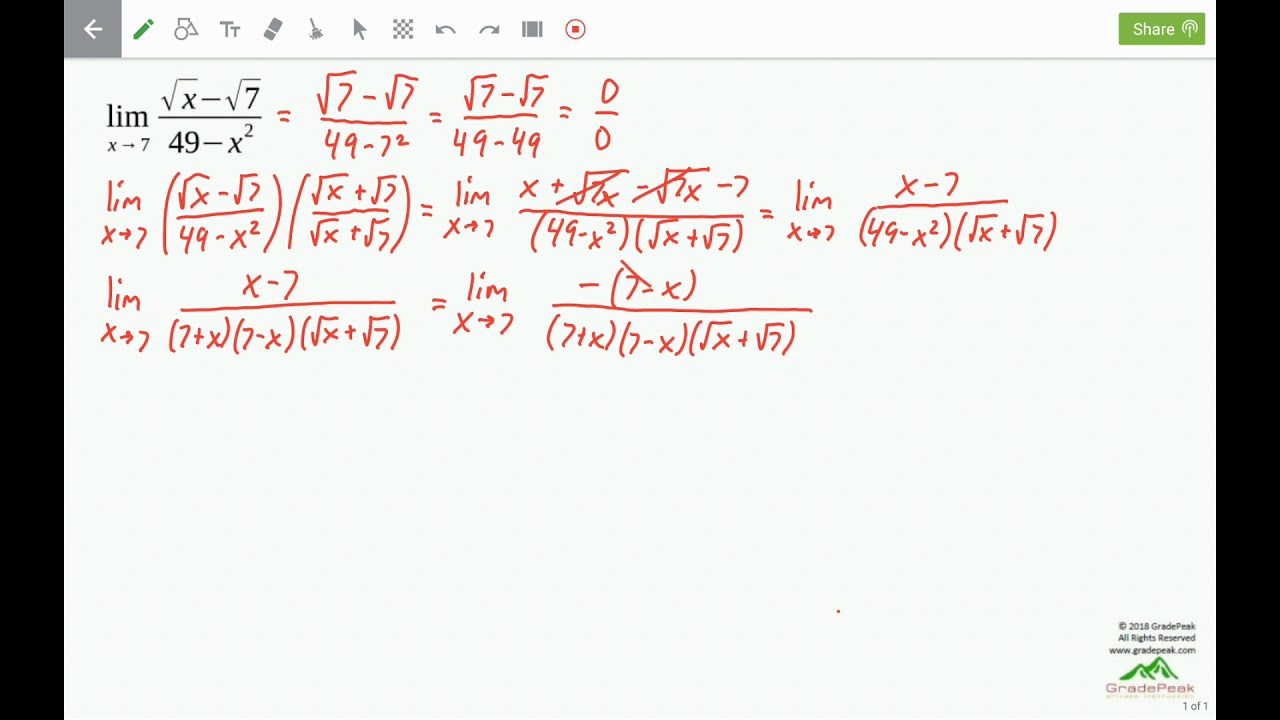 Share
lim x→7 (√x−√7)/(49−x²) = (√7−√7)/(49−7²) = (√7−√7)/(49−49) = 0/0
lim x→7 ((√x−√7)/(49−x²)) ((√x+√7)/(√x+√7)) = lim x→7 (x+√7x−√7x−7)/((49−x²)(√x+√7)) = lim x→7 (x−7)/((49−x²)(√x+√7))
lim x→7 (x−7)/((7+x)(7−x)(√x+√7)) = lim x→7 −(7−x)/((7+x)(7−x)(√x+√7))
© 2018 GradePeak
All Rights Reserved
www.gradepeak.com
GradePeak
1 of 1